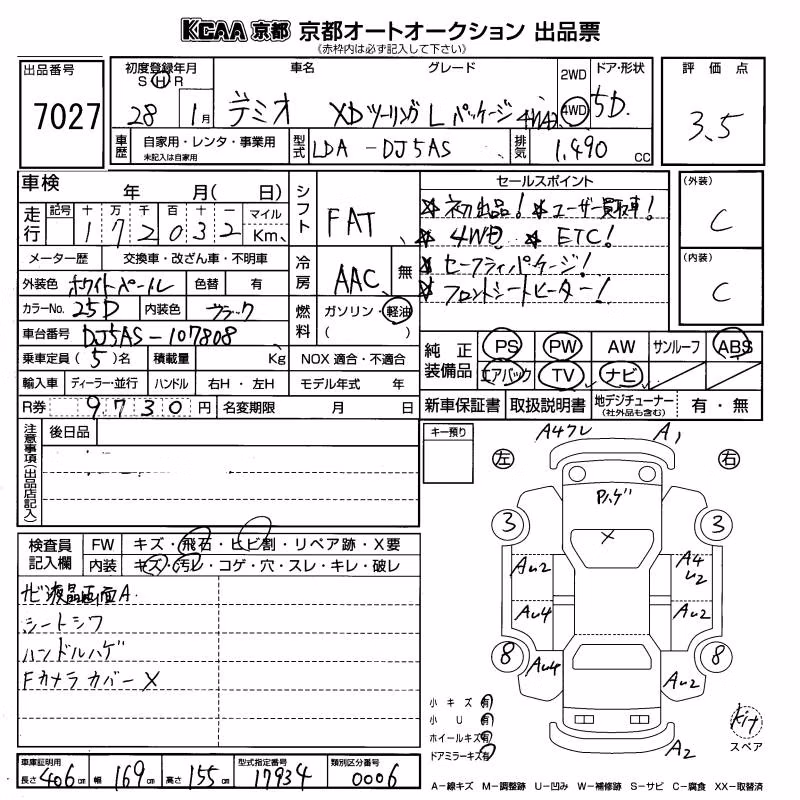 KCAA 京都 京都オートオークション 出品票
(赤枠内は必ず記入して下さい)
出品番号 7027
初度登録年月 S H 28 1月
車名 デミオ
グレード XDツーリング L パッケージ 4WD
2WD 4WD
ドア・形状 5D
評価点 3.5
車歴 自家用・レンタ・事業用 未記入は自家用
型式 LDA-DJ5AS
排気 1,490 CC
車検 年 月( 日)
走行 記号 十 万 千 百 十 一 マイル
1 7 2 0 3 2 Km
メーター歴 交換車・改ざん車・不明車
外装色 ホワイトパール 色替 有
カラーNo. 25D 内装色 ブラック
車台番号 DJ5AS-107808
乗車定員 (5)名 積載量 Kg
輸入車 ディーラー・並行 ハンドル 右H・左H
R券 9730円 名変期限 月 日
シフト FAT
冷房 AAC 無
燃料 ガソリン・軽油
( )
NOX 適合・不適合
モデル年式 年
セールスポイント
☆初出品! ☆ユーザー買取車!
☆4WD ☆ETC!
☆セーフティパッケージ!
☆フロントシートヒーター!
(外装) C
(内装) C
純正装備品 PS PW AW サンルーフ ABS
エアバック TV ナビ
新車保証書 取扱説明書 地デジチューナー (社外品も含む) 有・無
注意事項(出品店記入)
後日品
キー預り
検査員記入欄
FW キズ・飛石・ヒビ割・リペア跡・X要
内装 キズ・汚レ・コゲ・穴・スレ・キレ・破レ
ナビ液晶画面A
シートシワ
ハンドルハゲ
FカメラカバーX
左 右
A4フレ A1
Pハゲ
X
3 3
Au2 A4 U2
Au4 Au2
8 8
Au4 Au2
A2
小キズ 有
小U 有
ホイールキズ 有
ドアミラーキズ 有
Kit
スペア
車庫証明用 長さ 406cm 幅 169cm 高さ 155cm
型式指定番号 17934
類別区分番号 0006
A−線キズ M−調整跡 U−凹み W−補修跡 S−サビ C−腐食 XX−取替済